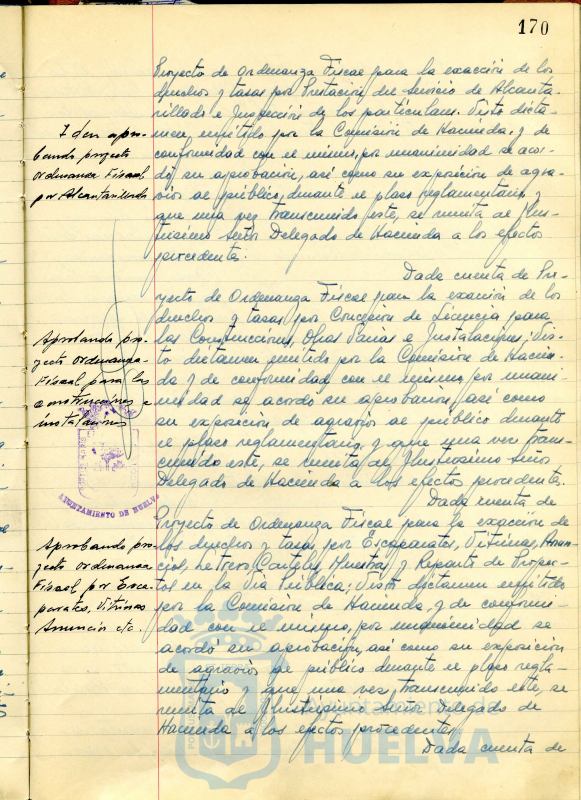 170
Proyecto de Ordenanza Fiscal para la exacción de los
derechos y tasas por Prestación del servicio de Alcanta-
rillado e Inspección de los particulares. Visto dicta-
men emitido por la Comisión de Hacienda, y de
conformidad con el mismo, por unanimidad se acor-
dó su aprobación, así como su exposición de agra-
vios al público, durante el plazo reglamentario, y
que una vez transcurrido este, se remita al Ilus-
trísimo Señor Delegado de Hacienda a los efectos
procedentes.
Idem apro-
bando proyecto
ordenanza Fiscal
por Alcantarillado
Dada cuenta de Pro-
yecto de Ordenanza Fiscal para la exacción de los
derechos y tasas por Concesión de Licencia para
las Construcciones, Obras Varias e Instalaciones; Vis-
to dictamen emitido por la Comisión de Hacien-
da y de conformidad con el mismo, por unani-
midad se acordó su aprobación, así como
su exposición de agravios al público durante
el plazo reglamentario, y que una vez trans-
currido este, se remita al Ilustrísimo Señor
Delegado de Hacienda a los efectos procedentes.
Aprobando pro-
yecto ordenanza
Fiscal para las
construcciones e
instalaciones
AYUNTAMIENTO DE HUELVA
Dada cuenta de
Proyecto de Ordenanza Fiscal para la exacción de
los derechos y tasas por Escaparates, Vitrinas, Anun-
cios, Letreros, Carteles, Muestras y Reparto de Prospec-
tos en la Vía Pública; Visto dictamen emitido
por la Comisión de Hacienda, y de conformi-
dad con el mismo, por unanimidad se
acordó su aprobación, así como su exposición
de agravios al público durante el plazo regla-
mentario y que una vez transcurrido este, se
remita al Ilustrísimo Señor Delegado de
Hacienda a los efectos procedentes.
Aprobando pro-
yecto ordenanza
Fiscal por Esca-
parates, Vitrinas
Anuncios etc.
Dada cuenta de
Ayuntamiento de
HUELVA